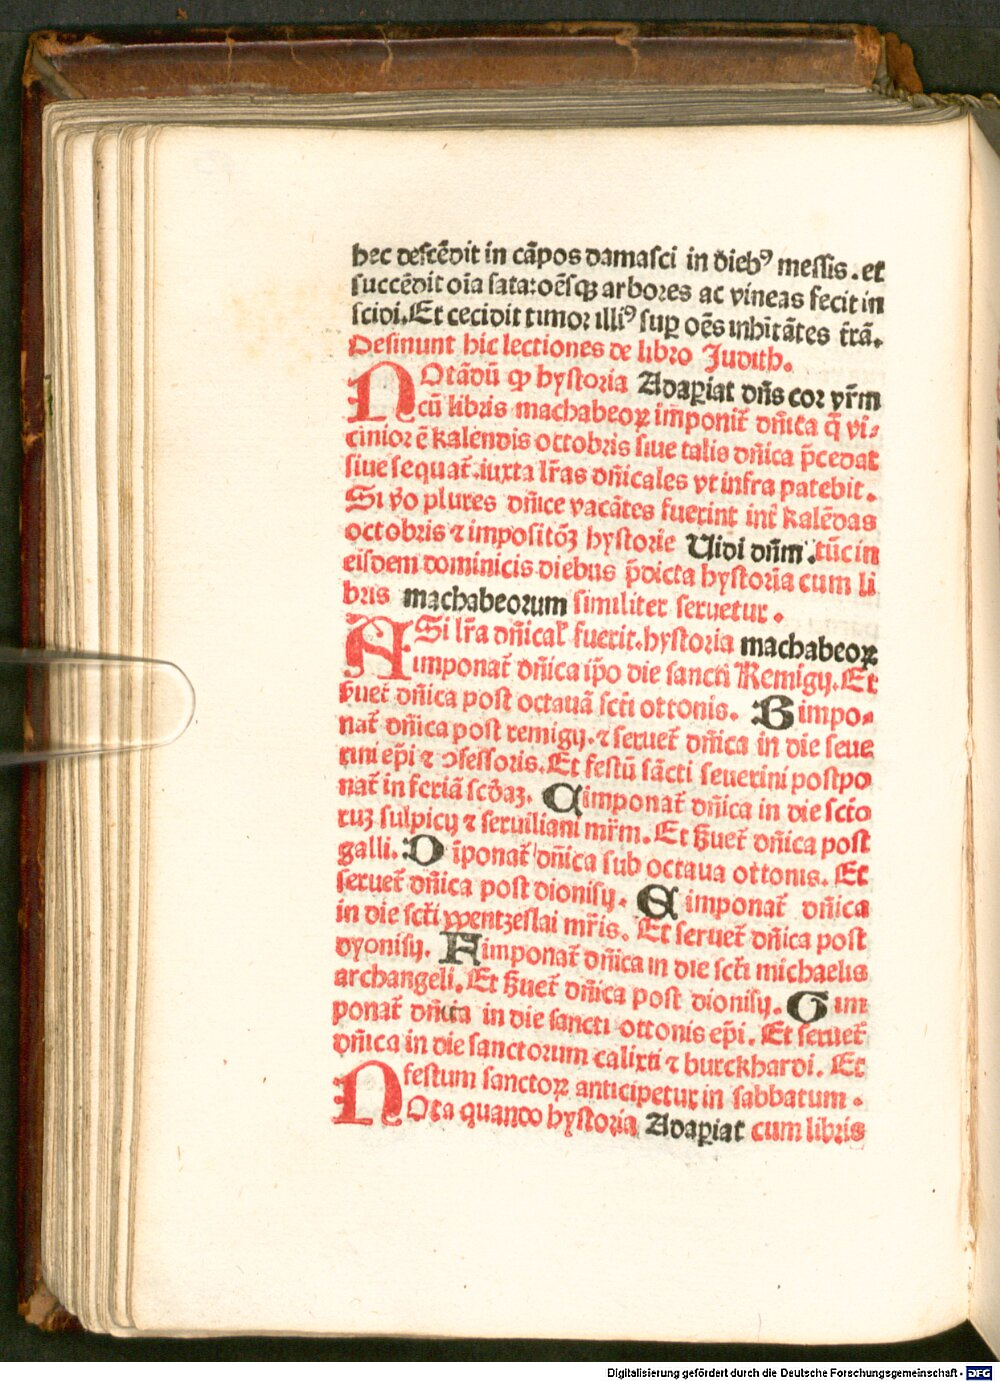 hec descēdit in cāpos damasci in dieb⁹ messis. et
succēdit oīa sata: oēsqꝫ arbores ac vineas fecit in
scidi. Et cecidit timor illi⁹ suꝑ oēs inhītātes t̄rā.
Desinunt hic lectiones de libro Judith.
NOtādū ꝙ hystoria Adaꝑiat dn̄s cor vr̄m
cū libris machabeoꝝ im̄ponit̄ dn̄ica q̄ vi⸗
cinior ē kalendis octobris siue talis dn̄ica p̄cedat
siue sequat̄. iuxta lr̄as dn̄icales vt infra patebit.
Si v̄o plures dn̄ice vacātes fuerint int̄ kalēdas
octobris ⁊ impositōꝫ hystorie Uidi dn̄m. tūc in
eisdem dominicis diebus p̄dicta hystoria cum li
bris machabeorum similiter seruetur.
ASi lr̄a dn̄ical̄ fuerit. hystoria machabeoꝝ
imponat̄ dn̄ica ip̄o die sancti Remigij. Et
s̄uet̄ dn̄ica post octauā scti ottonis. B impo⸗
nat̄ dn̄ica post remigij. ⁊ seruet̄ dn̄ica in die seue
rini ep̄i ⁊ ɔfessoris. Et festū sācti seuerini postpo
nat̄ in feriā scd̄aꝫ. C imponat̄ dn̄ica in die scto
ruꝫ sulpicij ⁊ seruiliani mr̄m. Et s̄uet̄ dn̄ica post
galli. D īponat̄ dn̄ica sub octaua ottonis. Et
seruet̄ dn̄ica post dionisij. E imponat̄ dn̄ica
in die scti wentzeslai mr̄is. Et seruet̄ dn̄ica post
dyonisij. F imponat̄ dn̄ica in die scti michaelis
archangeli. Et s̄uet̄ dn̄ica post dionisij. G im
ponat̄ dn̄ica in die sancti ottonis ep̄i. Et seruet̄
dn̄ica in die sanctorum calixti ⁊ burckhardi. Et
festum sanctoꝝ anticipetur in sabbatum.
NOta quando hystoria Adaꝑiat cum libris
Digitalisierung gefördert durch die Deutsche Forschungsgemeinschaft - DFG